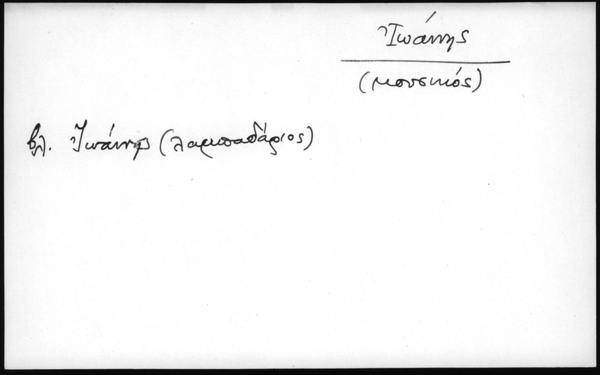 Ἰωάννης
(μουσικός)
βλ. Ἰωάννης (λαμπαδάριος)